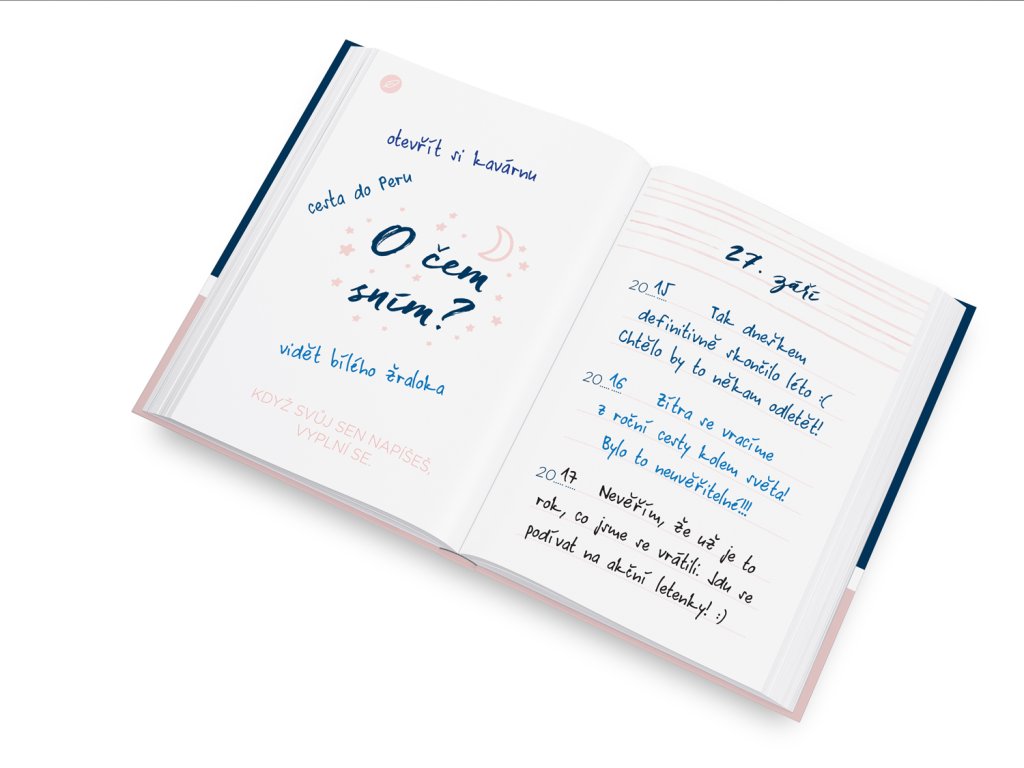 otevřít si kavárnu
cesta do Peru
O čem
sním?
vidět bílého žraloka
KDYŽ SVŮJ SEN NAPÍŠEŠ,
VYPLNÍ SE.
27. září
2015 Tak dneškem
definitivně skončilo léto :(
Chtělo by to někam odletět!
2016 Zítra se vracíme
z roční cesty kolem světa!
Bylo to neuvěřitelné!!!
2017 Nevěřím, že už je to
rok, co jsme se vrátili. Jdu se
podívat na akční letenky! :)